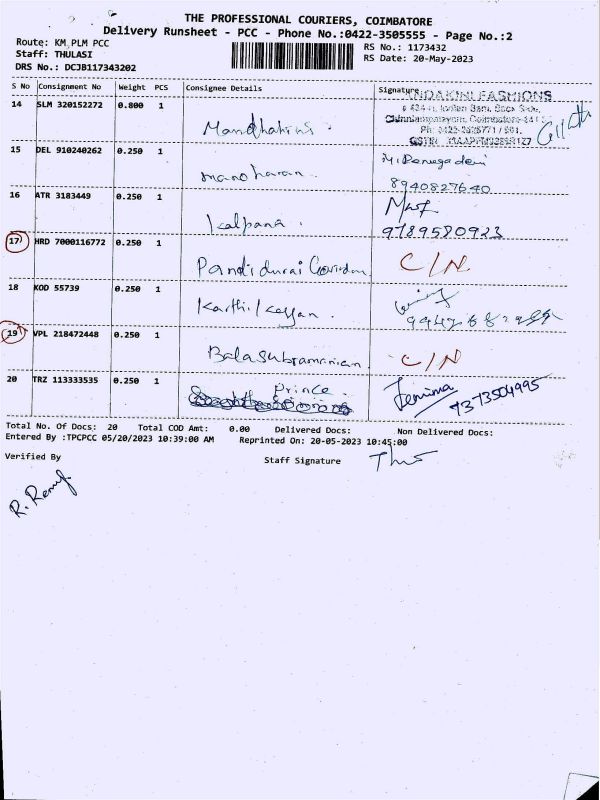 THE PROFESSIONAL COURIERS, COIMBATORE
Delivery Runsheet - PCC - Phone No.:0422-3505555 - Page No.:2
Route: KM PLM PCC
RS No.: 1173432
Staff: THULASI
RS Date: 20-May-2023
DRS No.: DCJB117343202
S No Consignment No Weight PCS Consignee Details Signature
14 SLM 320152272 0.800 1
NDAKINI FASHIONS
15 DEL 910240262 0.250 1 manoharan.
8940827640
16 ATR 3183449 0.250 1 kalpana.
9789580923
17 HRD 7000116772 0.250 1 Pandidurai Govindan C/N
18 KOD 55739 0.250 1 Karthikeyan.
19 VPL 218472448 0.250 1 Balasubramanian C/N
20 TRZ 113333535 0.250 1 Prince Jemima
7373504995
Total No. Of Docs: 20 Total COD Amt: 0.00 Delivered Docs: Non Delivered Docs:
Entered By :TPCPCC 05/20/2023 10:39:00 AM Reprinted On: 20-05-2023 10:45:00
Verified By Staff Signature